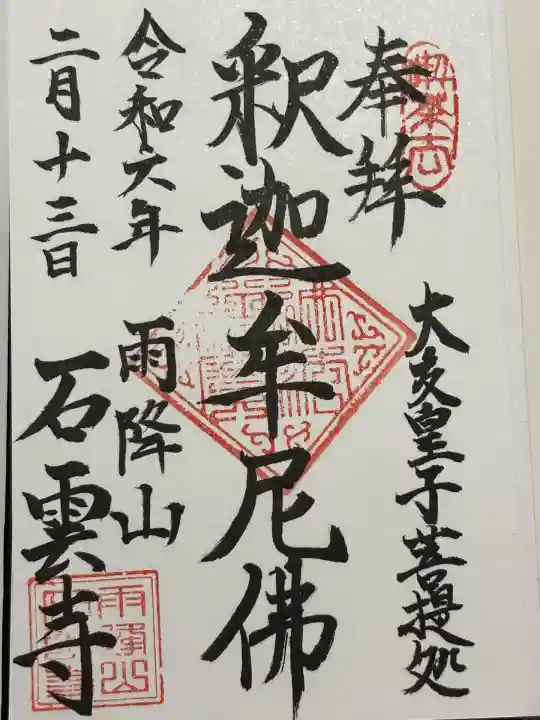 奉拜
大友皇子菩提処
釈迦牟尼佛
令和六年
二月十三日
雨降山
石雲寺
雨降山